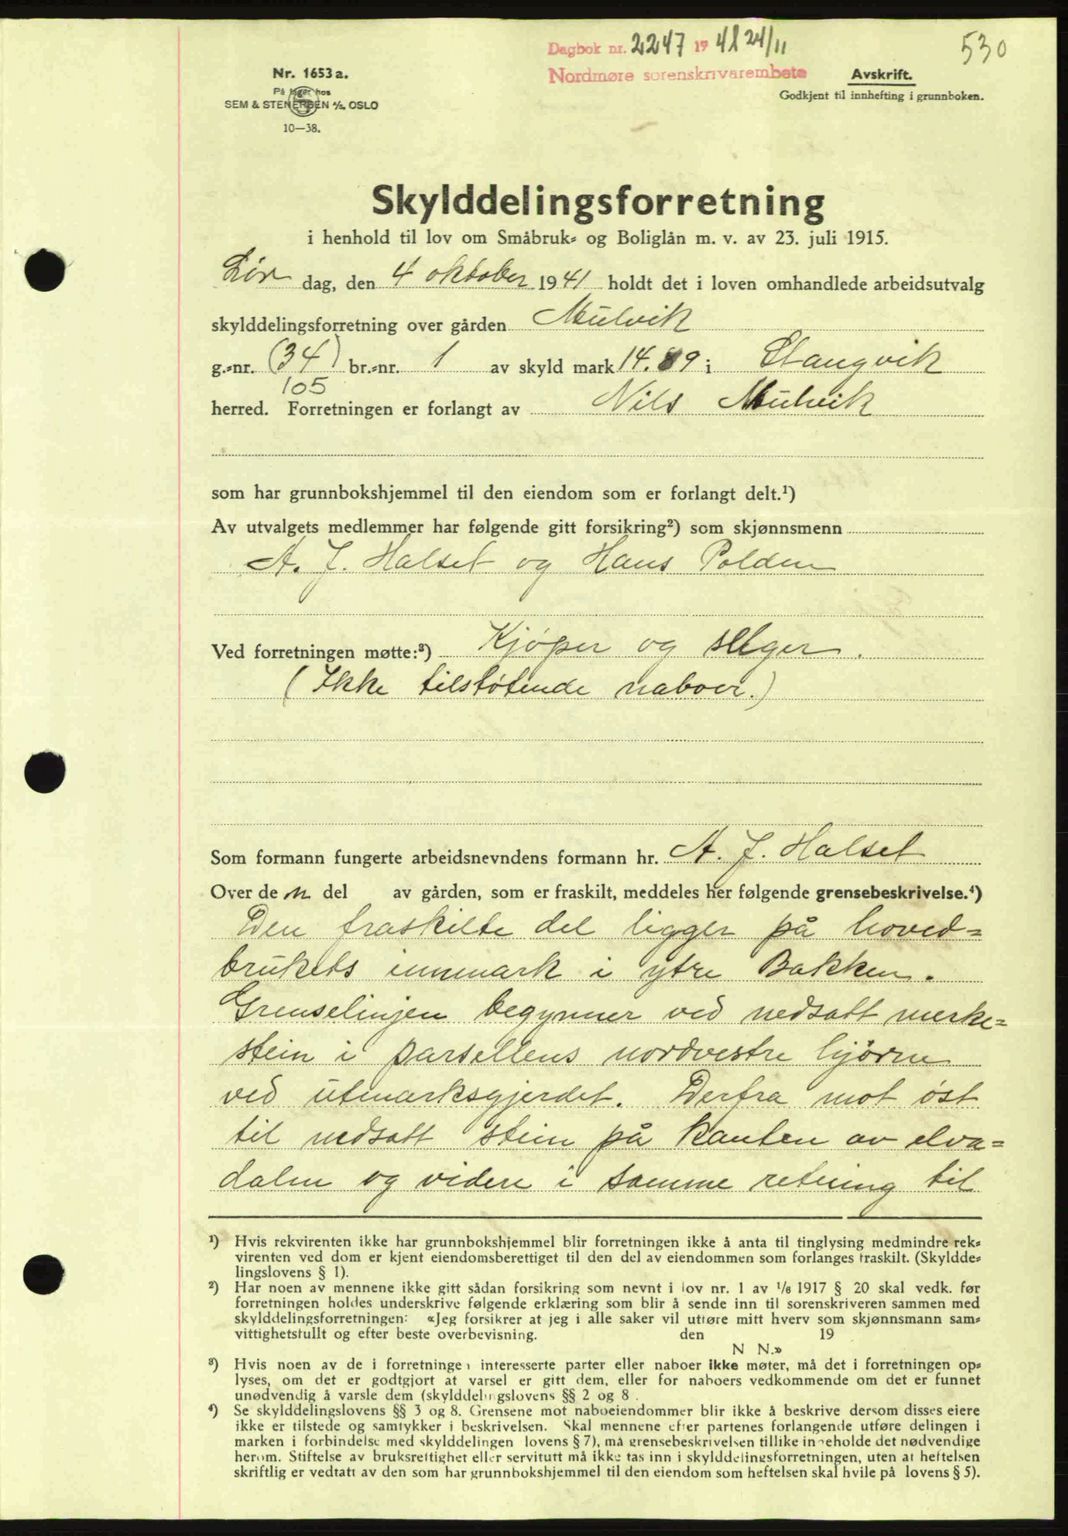 Dagbok nr. 2247 1941 24/11
530
Nordmøre sorenskrivarembete
Nr. 1653 a.
På lager hos
SEM & STENERSEN A/S. OSLO
10—38.
Avskrift.
Godkjent til innhefting i grunnboken.
Skylddelingsforretning
i henhold til lov om Småbruk- og Boliglån m. v. av 23. juli 1915.
Lør dag, den 4 oktober 1941 holdt det i loven omhandlede arbeidsutvalg
skylddelingsforretning over gården Mulvik
g.-nr. (34) br.-nr. 1 av skyld mark 14.89 i Stangvik
105
herred. Forretningen er forlangt av Nils Mulvik
som har grunnbokshjemmel til den eiendom som er forlangt delt.¹)
Av utvalgets medlemmer har følgende gitt forsikring²) som skjønnsmenn
A. J. Halset og Hans Polden
Ved forretningen møtte:³) Kjøper og selger.
(Ikke tilstøtende naboer.)
Som formann fungerte arbeidsnevndens formann hr. A. J. Halset
Over den del av gården, som er fraskilt, meddeles her følgende grensebeskrivelse.⁴)
Den fraskilte del ligger på hoved-
brukets innmark i ytre Bakken.
Grenselinjen begynner ved nedsatt merke-
stein i parsellens nordvestre hjørne
ved utmarksgjerdet. Derfra mot øst
til nedsatt stein på kanten av elva-
dalen og videre i samme retning til
¹) Hvis rekvirenten ikke har grunnbokshjemmel blir forretningen ikke å anta til tinglysing medmindre rek-
virenten ved dom er kjent eiendomsberettiget til den del av eiendommen som forlanges fraskilt. (Skyldde-
lingslovens § 1).
²) Har noen av mennene ikke gitt sådan forsikring som nevnt i lov nr. 1 av 1/6 1917 § 20 skal vedk. før
forretningen holdes underskrive følgende erklæring som blir å sende inn til sorenskriveren sammen med
skylddelingsforretningen: «Jeg forsikrer at jeg i alle saker vil utføre mitt hverv som skjønnsmann sam-
vittighetsfullt og efter beste overbevisning. den 19
N N.»
³) Hvis noen av de i forretningen interesserte parter eller naboer ikke møter, må det i forretningen op-
lyses, om det er godtgjort at varsel er gitt dem, eller for naboers vedkommende om det er funnet
unødvendig å varsle dem (skylddelingslovens §§ 2 og 8.
⁴) Se skylddelingslovens §§ 3 og 8. Grensene mot naboeiendommer blir ikke å beskrive dersom disses eiere
ikke er tilstede og samtykker i beskrivelsen. Skal mennene efter partenes forlangende utføre delingen i
marken i forbindelse med skylddelingen lovens § 7), må grensebeskrivelsen tillike inneholde det nødvendige
herom. Stiftelse av bruksrettighet eller servitutt må ikke tas inn i skylddelingsforretningen, uten at heftelsen
skriftlig er vedtatt av den som har grunnbokshjemmel til den eiendom som heftelsen skal hvile på lovens § 5).